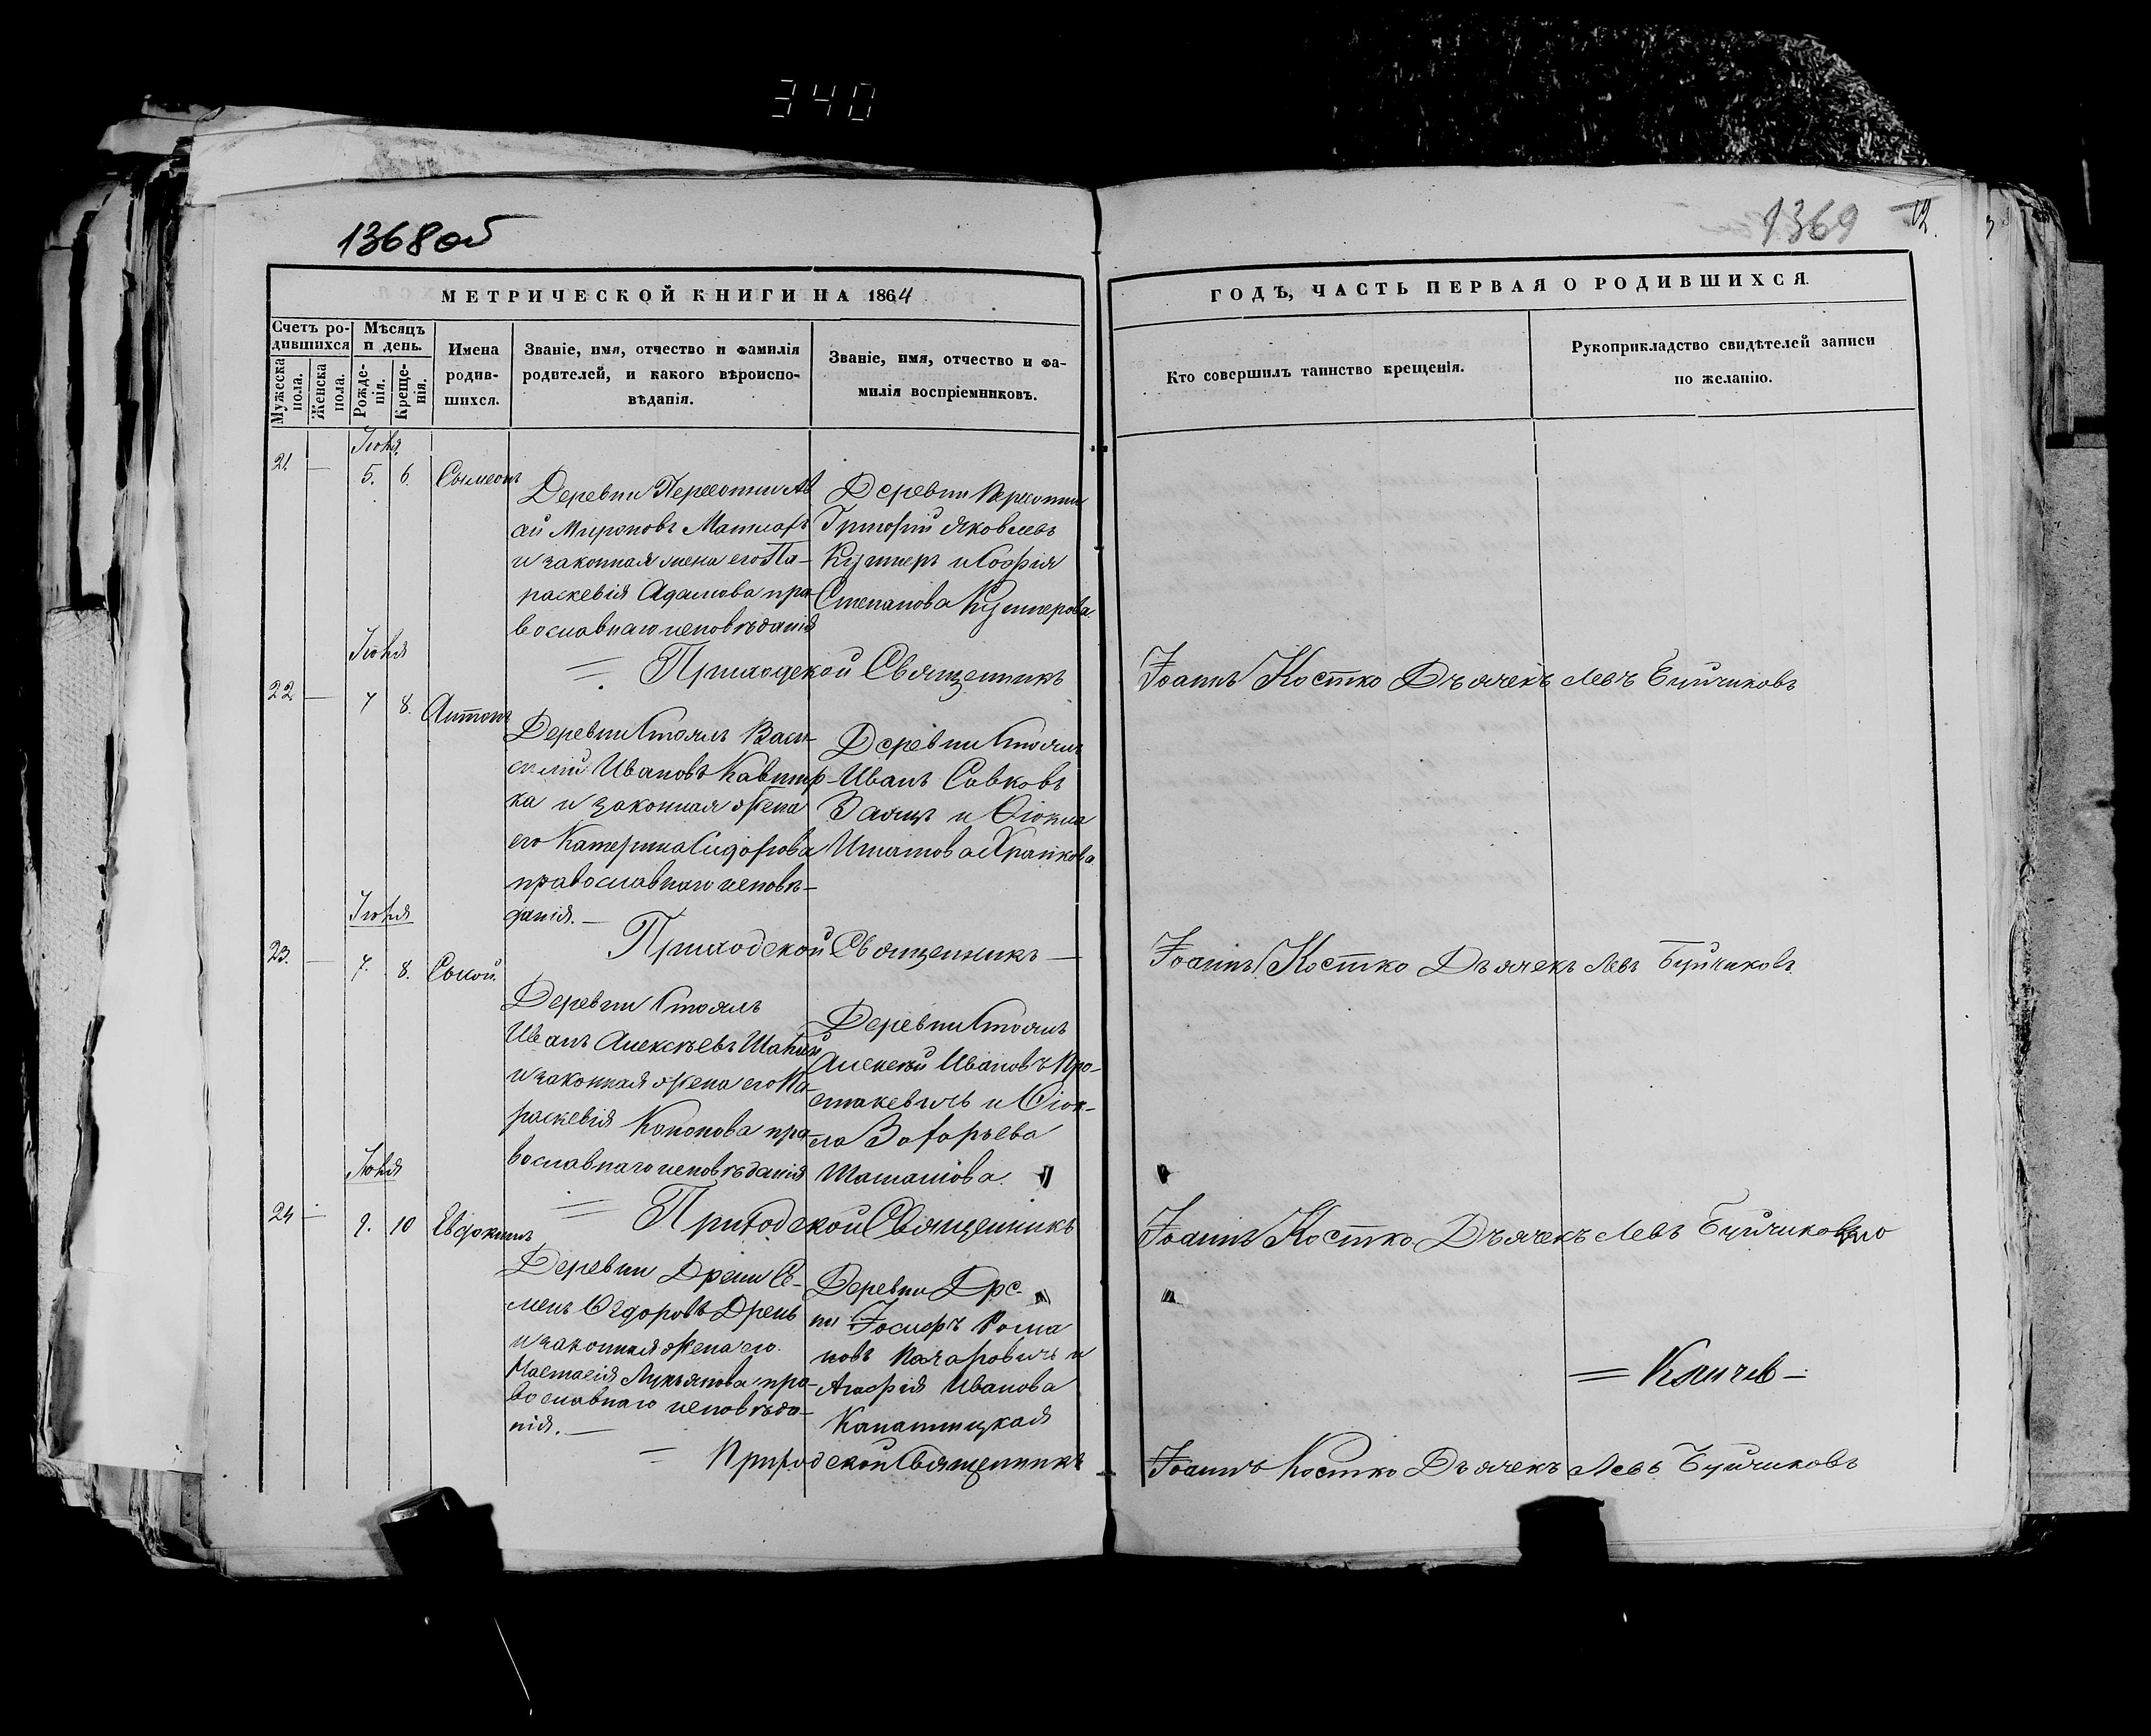 340
1368 об
1369
12.
МЕТРИЧЕСКОЙ КНИГИ НА 1864
ГОДЪ, ЧАСТЬ ПЕРВАЯ О РОДИВШИХСЯ.
Счетъ ро-
дившихся
Мѣсяцъ
и день.
Мужеска
пола.
Женска
пола.
Рожде-
нія.
Креще-
нія.
Имена
родив-
шихся.
Званіе, имя, отчество и фамилія
родителей, и какого вѣроиспо-
вѣданія.
Званіе, имя, отчество и фа-
милія воспріемниковъ.
Кто совершилъ таинство крещенія.
Рукоприкладство свидѣтелей записи
по желанію.
21 —
5. 6.
Деревни
ай Мироновъ
и законная жена его Па-
раскевія Адамова пра-
вославнаго исповѣданія
Деревни
Григорій Яковлевъ
Кушнеръ и Софія
Степанова Кушнерова
= Приходской Священникъ
Іоаннъ Костко Дъячекъ Левъ Буйчиковъ
22 —
7 8. Антонъ
Деревни Стоялъ Васи-
лій Ивановъ
ка и законная жена
его Катерина Сидорова
православнаго исповѣ-
данія. —
Деревни Стоялъ
Иванъ Савковъ
Заяцъ и
Приходской Священникъ —
Іоаннъ Костко Дъячекъ Левъ Буйчиковъ
23. —
7. 8. Сысой.
Деревни Стоялъ
Иванъ Алексѣевъ
и законная жена его Па-
раскевія Кононова пра-
вославнаго исповѣданія
Деревни Стоялъ
Алексѣй Ивановъ Про-
стакевичъ и
Захарьева
= Приходской Священникъ
Іоаннъ Костко Дъячекъ Левъ Буйчиковъ
24 —
9. 10 Евдокимъ
Деревни Дрени Се-
менъ Ѳедоровъ Дрень
и законная жена его
Настасія Лукьянова пра-
вославнаго исповѣда-
нія. —
Деревни Дре-
ни Іосифъ Рома
новъ и
Агафія Иванова
= Приходской Священникъ
Іоаннъ Костко Дъячекъ Левъ Буйчиковъ